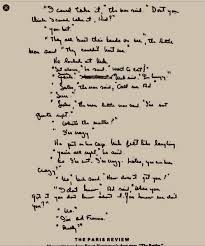 "I could take it," the man said. "Don't you
think I could take it, kid?"
"You bet."
"They all bust their hands on me," the little
man said. "They couldn't hurt me."
He looked at
said. "Want to eat?"
said. "I'm hungry."
"Listen," the man said, "call me Ad."
"Sure."
"Listen," the little man said. "I'm not
quite right."
"What's the matter?"
"I'm crazy."
He put on his cap. Nick felt like laughing.
"You're all right," he said.
"No, I'm not. I'm crazy. Listen, you ever been
crazy?"
"No," Nick said. "How does it get you?"
"I don't know," Ad said. "When you
got it you don't know about it. You know me don't
you?"
"No."
"I'm Ad Francis."
THE PARIS REVIEW